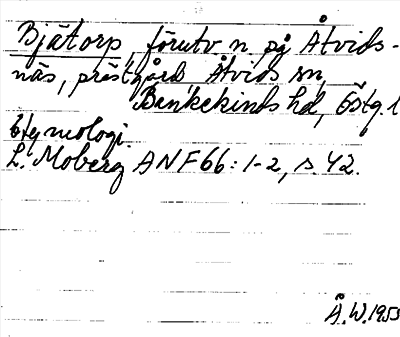 Bjätorp, förutv n på Åtvids-
näs, prästgård, Åtvids sn,
Bankekinds hd, Östg. l
Etymologi.
L. Moberg ANF 66: 1-2, s. 42.
Å.W. 1955